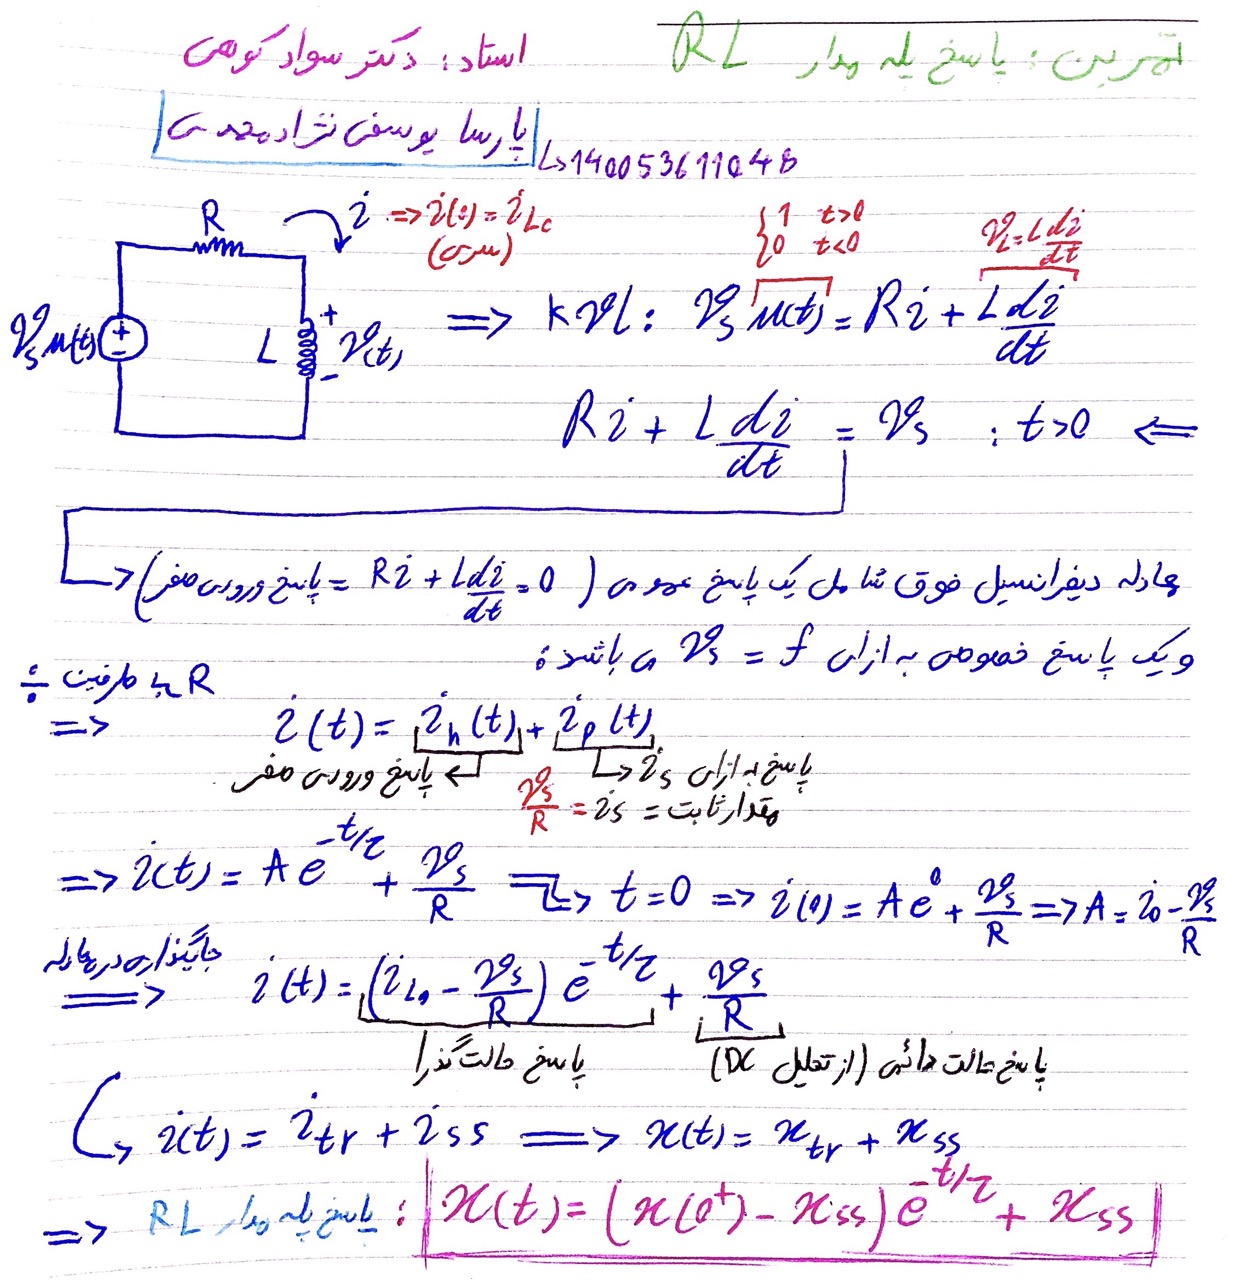 تمرین: پاسخ پله مدار RL
استاد: دکتر سواد کوهی
پارسا یوسفی نژاد محمدی
↳ 140053611048
R
i => i(0) = i_L0
(سری)
{1 t>0
{0 t<0
v_L = L di/dt
V_s u(t)
+
-
L
+
v(t)
-
=> KVL: V_s u(t) = Ri + L di/dt
Ri + L di/dt = V_s : t>0 <=
معادله دیفرانسیل فوق شامل یک پاسخ عمومی (پاسخ ورودی صفر = Ri + L di/dt = 0)
و یک پاسخ خصوصی به ازای V_s = f می باشد:
÷ طرفین به R
=> i(t) = i_h(t) + i_p(t)
پاسخ ورودی صفر
پاسخ به ازای i_s
مقدار ثابت = i_s = V_s/R
=> i(t) = A e^{-t/τ} + V_s/R => t=0 => i(0) = A e^0 + V_s/R => A = i_0 - V_s/R
جایگذاری در معادله
=> i(t) = (i_L0 - V_s/R) e^{-t/τ} + V_s/R
پاسخ حالت گذرا
پاسخ حالت دائمی (از تحلیل DC)
i(t) = i_tr + i_ss => x(t) = x_tr + x_ss
=> پاسخ پله مدار RL : x(t) = (x(0^+) - x_ss) e^{-t/τ} + x_ss